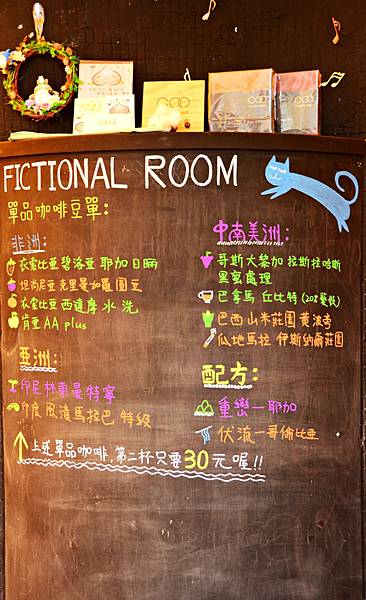 FICTIONAL ROOM
單品咖啡豆單:
非洲:
衣索比亞碧洛亞 耶加日曬
坦尚尼亞克里曼加羅圓豆
衣索比亞西達摩 水洗
肯亞 AA plus
亞洲:
印尼林東曼特寧
印度風漬馬拉巴 特級
中南美洲:
哥斯大黎加 拉斯拉哈斯
黑蜜處理
巴拿馬 丘比特
巴西山米莊園黃波旁
瓜地馬拉 伊斯納爾莊園
配方:
重巒一耶加
伏流一哥倫比亞
上述單品咖啡,第二杯只要30元喔!!